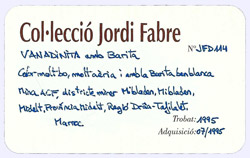 Col·lecció Jordi Fabre
VANADINITA amb Barita
Nº JFD114
molt bo, i amb la Barita ben blanca
Mina ACF, districte miner Mibladen, Mibladen,
Midelt, Província Midelt, Regió Drâa-Tafilalet,
Marroc
Trobat: 1995
Adquisició: 07/1995